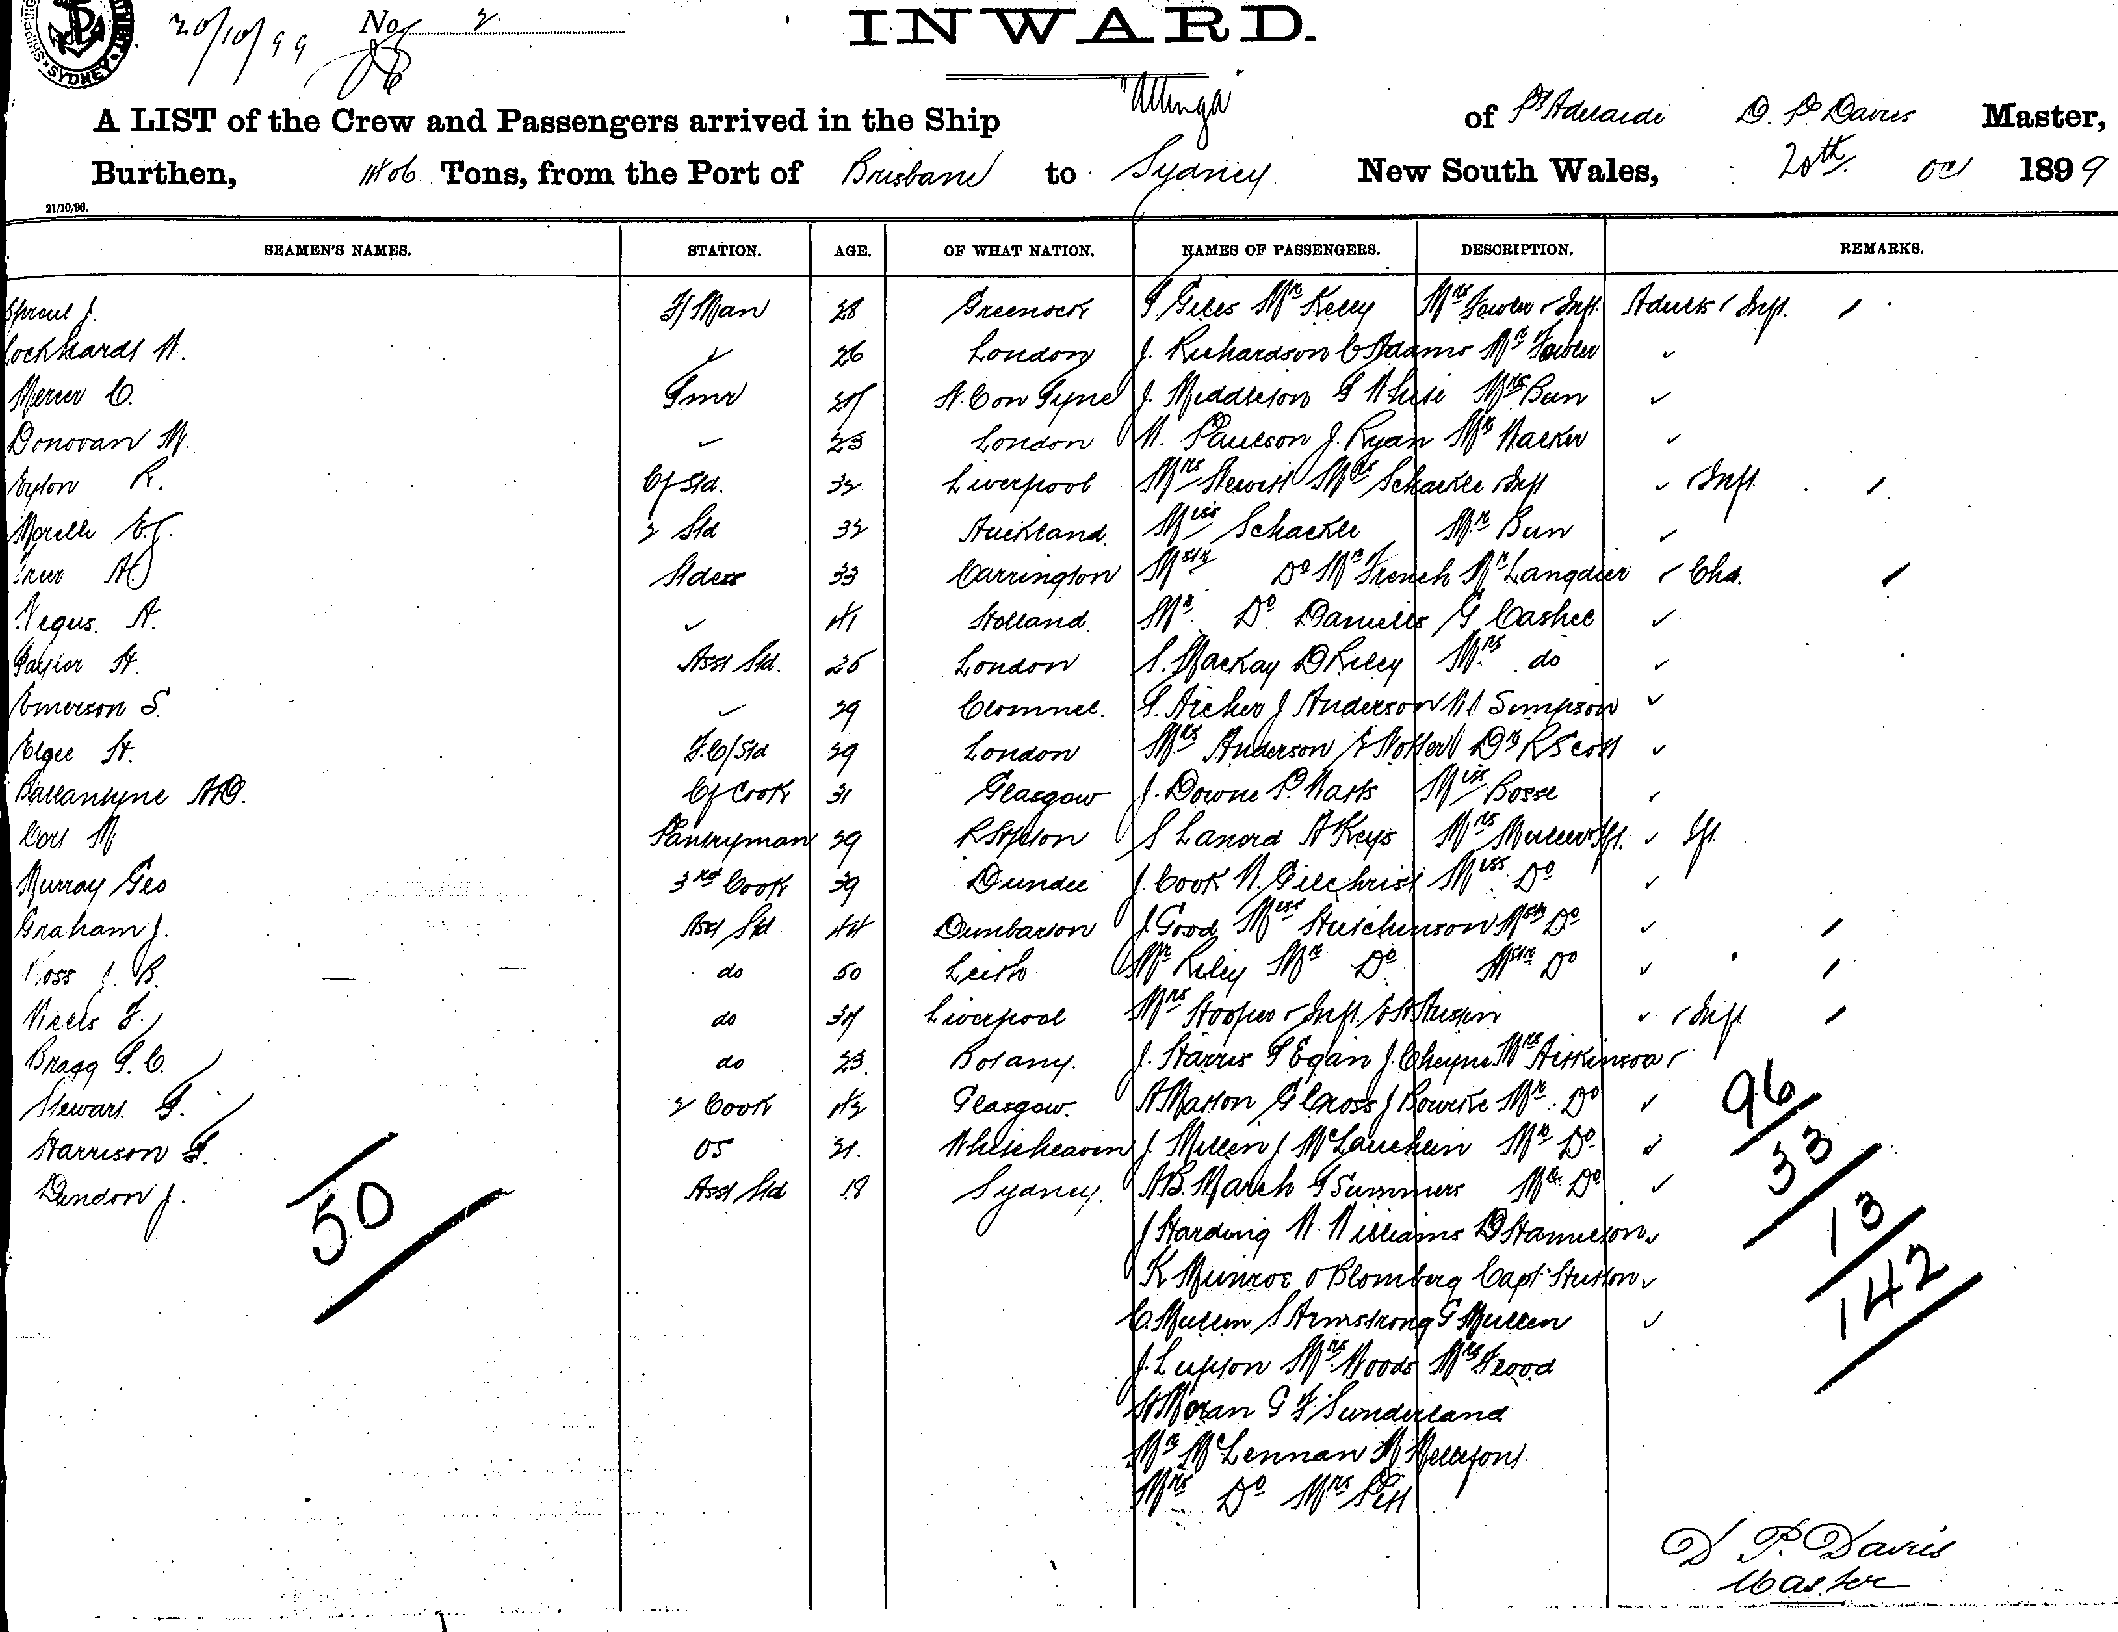 SYDNEY
20/10/99 No 2
INWARD.
A LIST of the Crew and Passengers arrived in the Ship of Pt Adelaide D. P. Davies Master,
Burthen, Tons, from the Port of Brisbane to Sydney New South Wales, 20th Oc 1899
21/10/96.
SEAMEN'S NAMES. STATION. AGE. OF WHAT NATION. NAMES OF PASSENGERS. DESCRIPTION. REMARKS.
Sproul J. F/Man 28 Greenock Giles Mr Kelly Mrs Fowler & Inft. Adults & Inft.
Lockhardt W. 26 London J. Richardson C Adams Mr Fowler
Mercer C. Tmr N. Con Tyne J. Middleton G White Mrs Bun
Donovan M. 23 London W. Paulson J. Ryan Mr Walker
R. Cf Std. 32 Liverpool Mrs Hewitt Mrs Schackle Inft & Inft
2 Std 32 Auckland. Miss Schackle Mr Bun
33 Carrington Mstr Do Mr French Mr Langdier & Chd.
Negus. A. 41 Holland. Mr. Do Daniells G Cashel
Taylor H. Asst Std. 25 London S. Mackay D Riley Mrs. do
Emerson S. 29 Clonmel. Archer J Anderson Simpson
Elgee H. F.C/Std 29 London Mrs Anderson Dr R Scott
Ballantyne Cf Cook 31 Glasgow J. Downe P. Watts Miss Bosse
M Pantryman 29 S Lanord A Keys Mrs
Murray Geo 3rd Cook 39 Dundee J. Cook W. Gilchrist Miss. Do
Graham J. Asst Std 44 Dumbarton J. Good Miss Hutchinson Mstr Do
Ross J. B. do 50 Leith Mr Riley Mr Do Mstr Do
F. do Liverpool Mrs Hooper & Inft. & Inft
Bragg do 23 Botany. J. Harris Egan J. Cheyne Mrs Atkinson
Stewart G. 2 Cook 42 Glasgow. A Marton G Cross J Bourke Mr. Do
Harrison OS 21. Whitehaven J Mullin J McLauchlin Mr Do
Dundon J. Asst Std 18 Sydney. A B. March G Summers Mr Do
J Harding W. Williams D Hamilton
K Munroe O Blomberg Capt Hutton
C. Mullin S Armstrong G Mullen
J. Lupton Mrs Woods Mrs Frood
H Moran G F Sunderland
Mr McLennan
Mrs Do Mrs Pitt
50
96
33
13
142
D P. Davies
Master